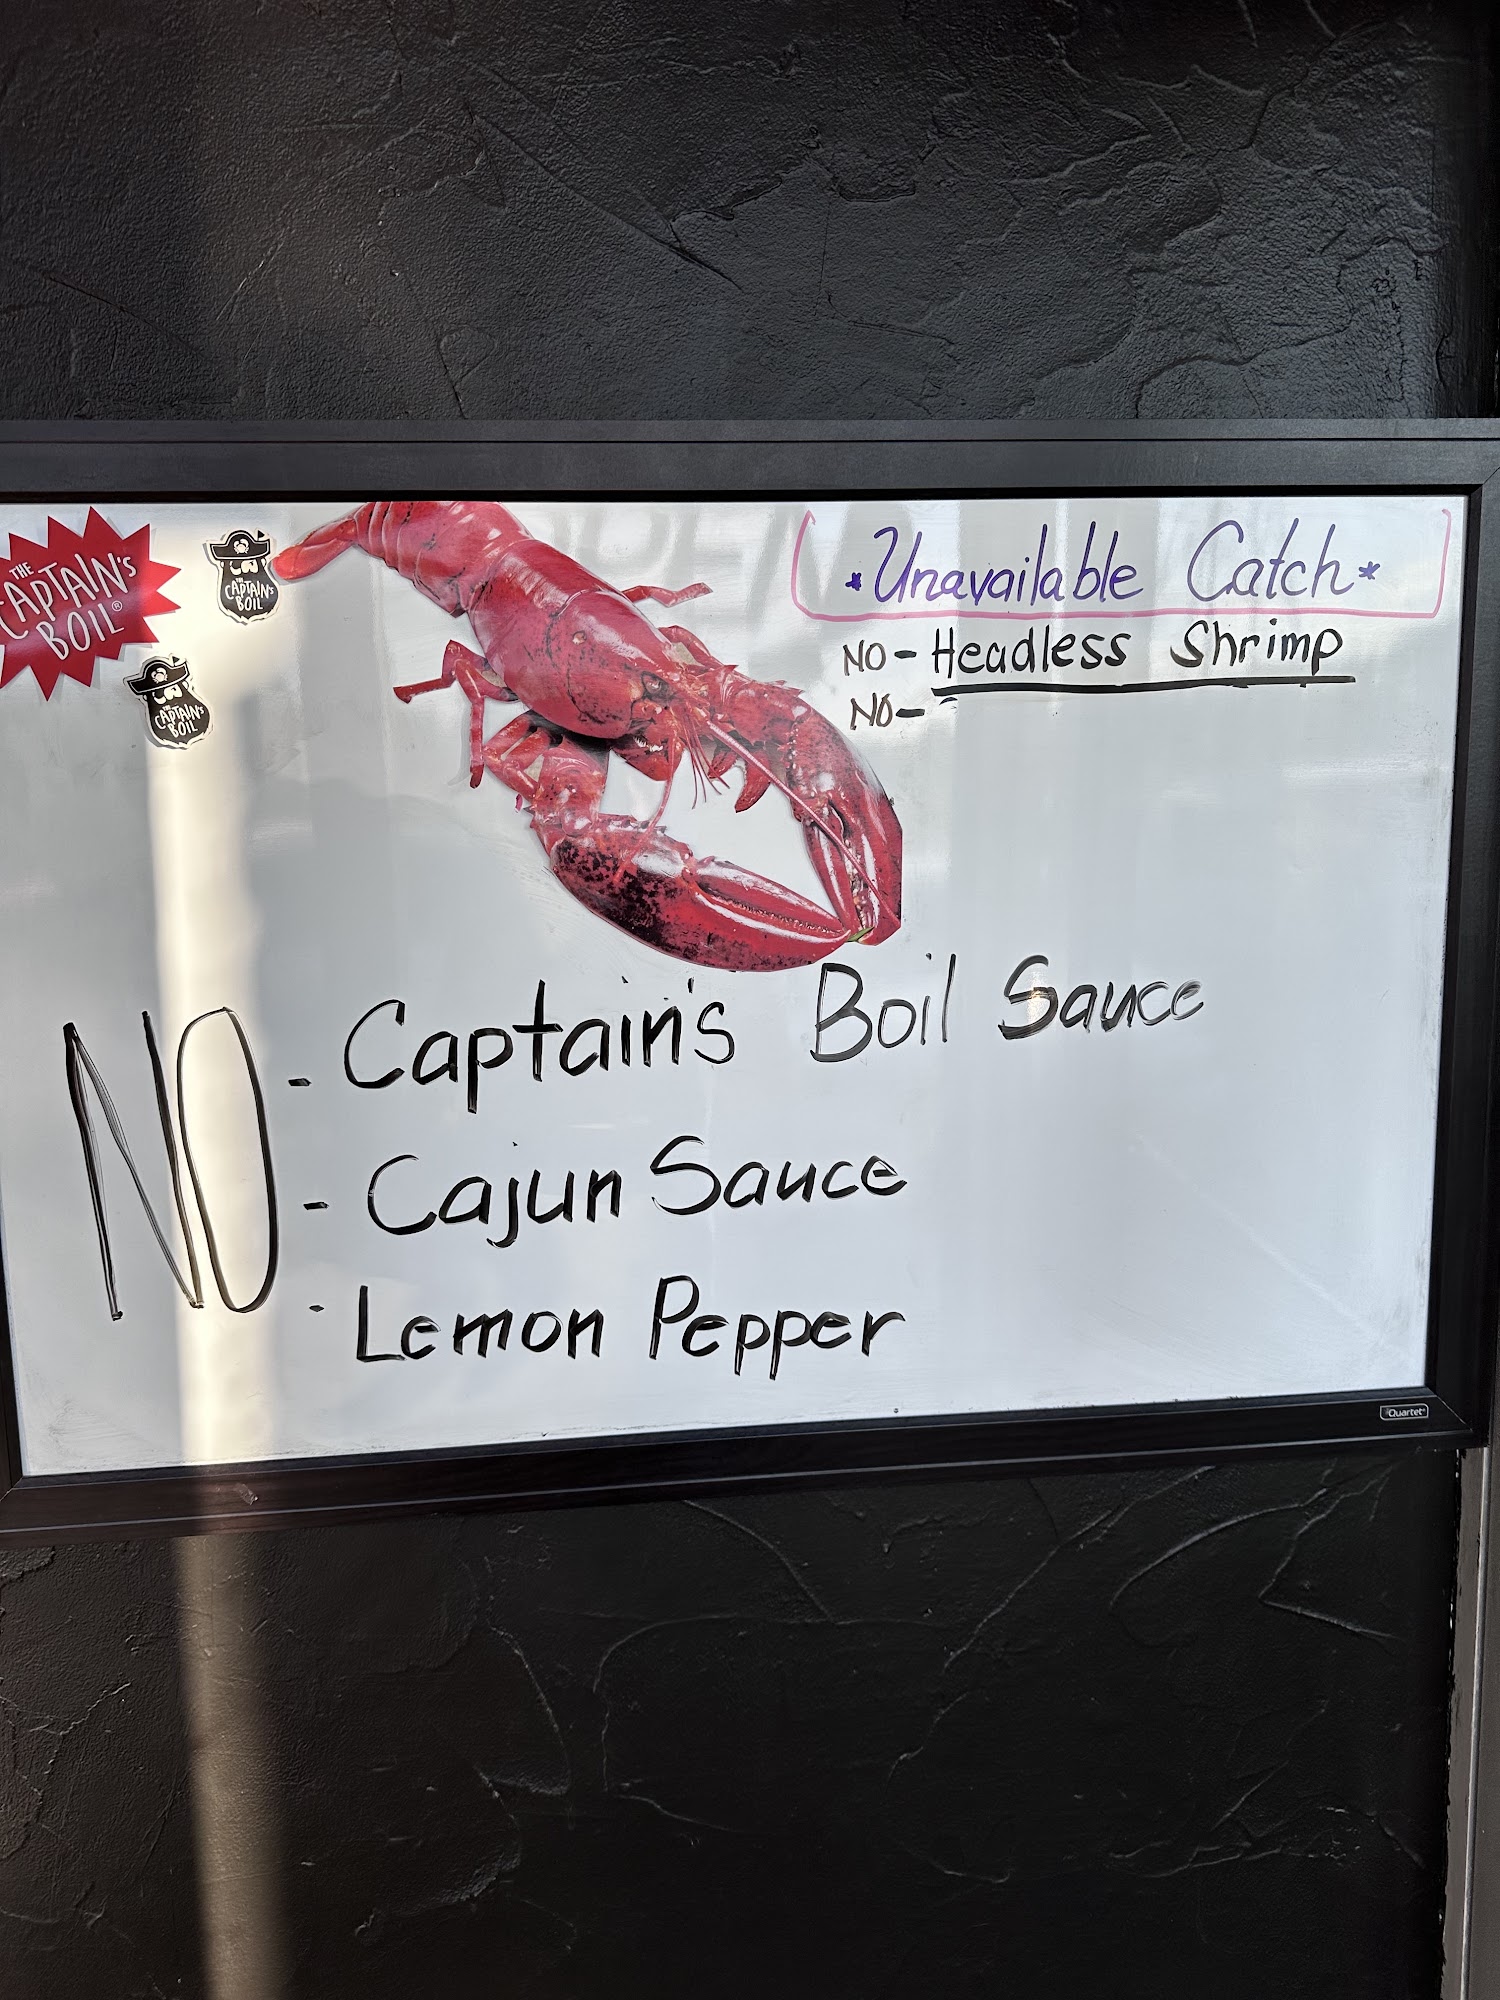 THE
CAPTAIN'S
BOIL®
THE
CAPTAIN'S
BOIL
THE
CAPTAIN'S
BOIL
*Unavailable Catch*
NO- Headless Shrimp
NO-
NO
- Captain's Boil Sauce
- Cajun Sauce
- Lemon Pepper
Quartet